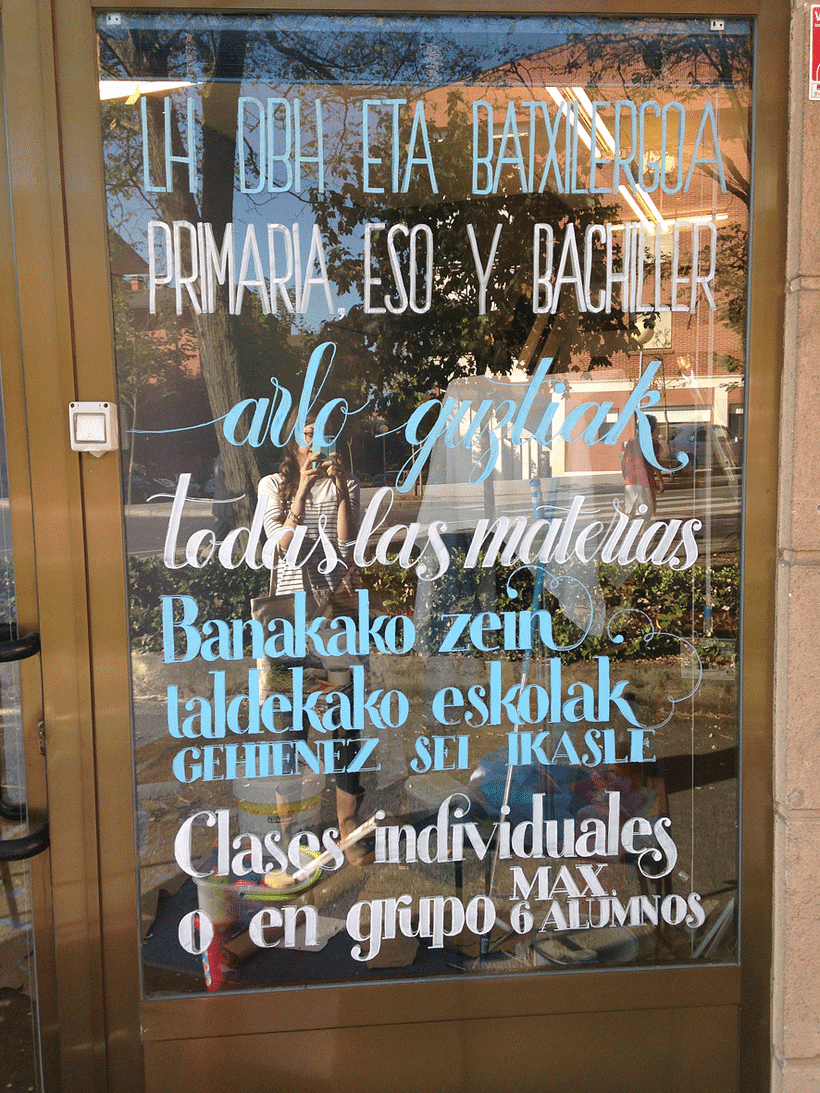 LH DBH ETA BATXILERGOA
PRIMARIA, ESO Y BACHILLER
arlo guztiak
todas las materias
Banakako zein
taldekako eskolak
GEHIENEZ SEI IKASLE
Clases individuales
o en grupo MAX.
6 ALUMNOS